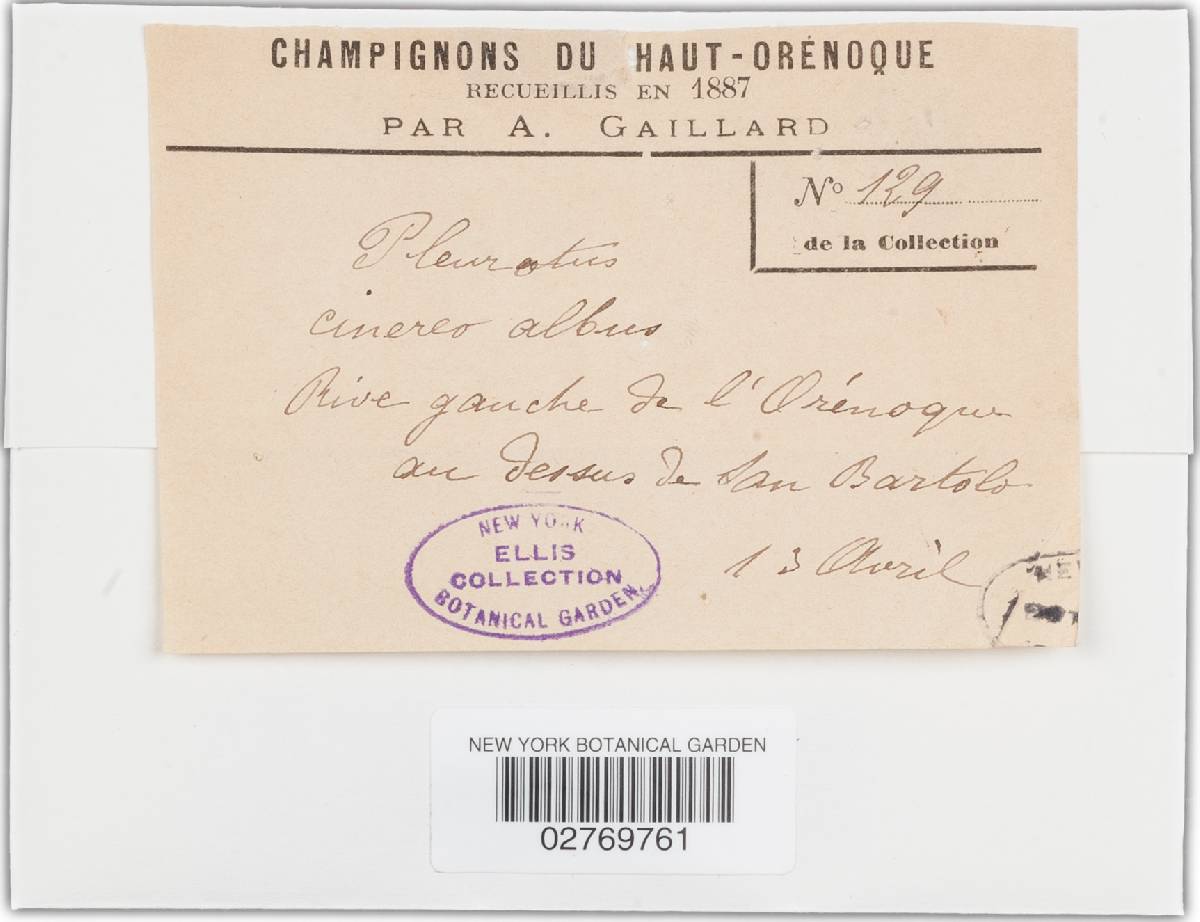 CHAMPIGNONS DU HAUT-ORÉNOQUE
RECUEILLIS EN 1887
PAR A. GAILLARD
No 129
de la Collection
Pleurotus
cinereo albus
Rive gauche de l'Orénoque
au dessus de San Bartolo
13 Avril
NEW YORK
ELLIS
COLLECTION
BOTANICAL GARDEN
NEW YORK BOTANICAL GARDEN
02769761